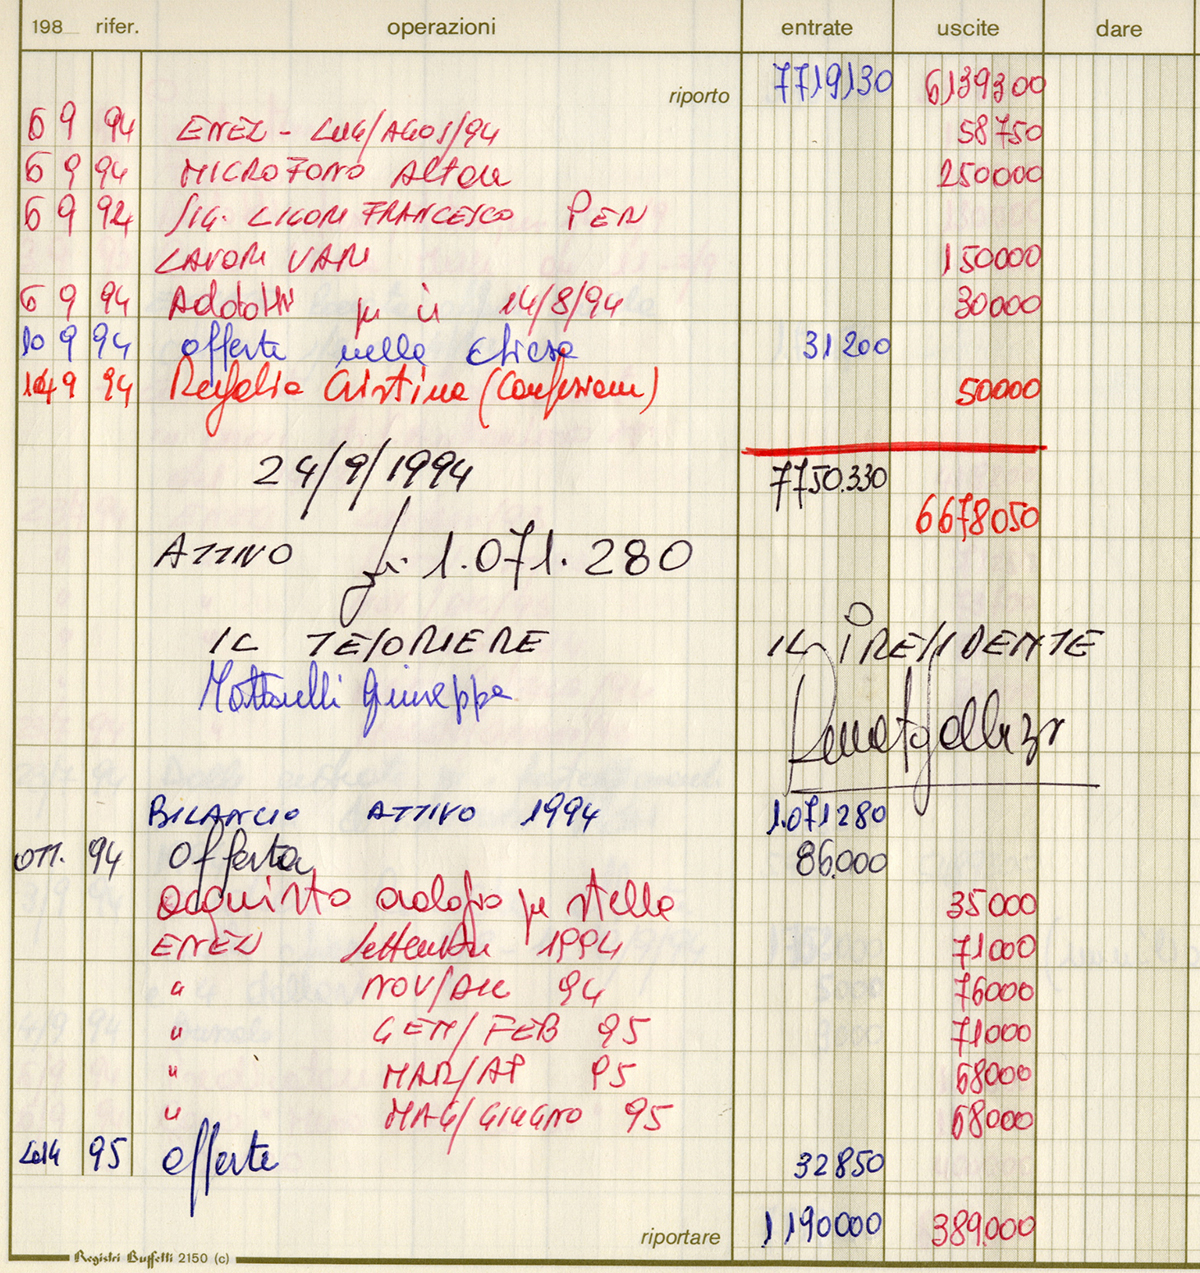 198 rifer. operazioni entrate uscite dare
riporto 7719130 6139300
6 9 94 ENEL - LUG/AGOS/94 58750
6 9 94 MICROFONO Altare 250000
6 9 94 SIG. LIGORI FRANCESCO PER
LAVORI VARI 150000
6 9 94 Addobbi per il 14/8/94 30000
10 9 94 offerte nella chiesa 31200
14 9 94 Cristina (Confessione) 50000
24/9/1994 7750.330
6678050
ATTIVO £. 1.071.280
IL TESORIERE IL PRESIDENTE
Giuseppe
BILANCIO ATTIVO 1994 1.071280
OTT. 94 Offerta 86.000
acquisto orologio per stelle 35000
ENEL Settembre 1994 71000
" NOV/DIC 94 76000
" GEN/FEB 95 71000
" MAR/AP 95 68000
" MAG/GIUGNO 95 68000
95 offerte 32850
riportare 1190000 389.000
Registri Buffetti 2150 (c)